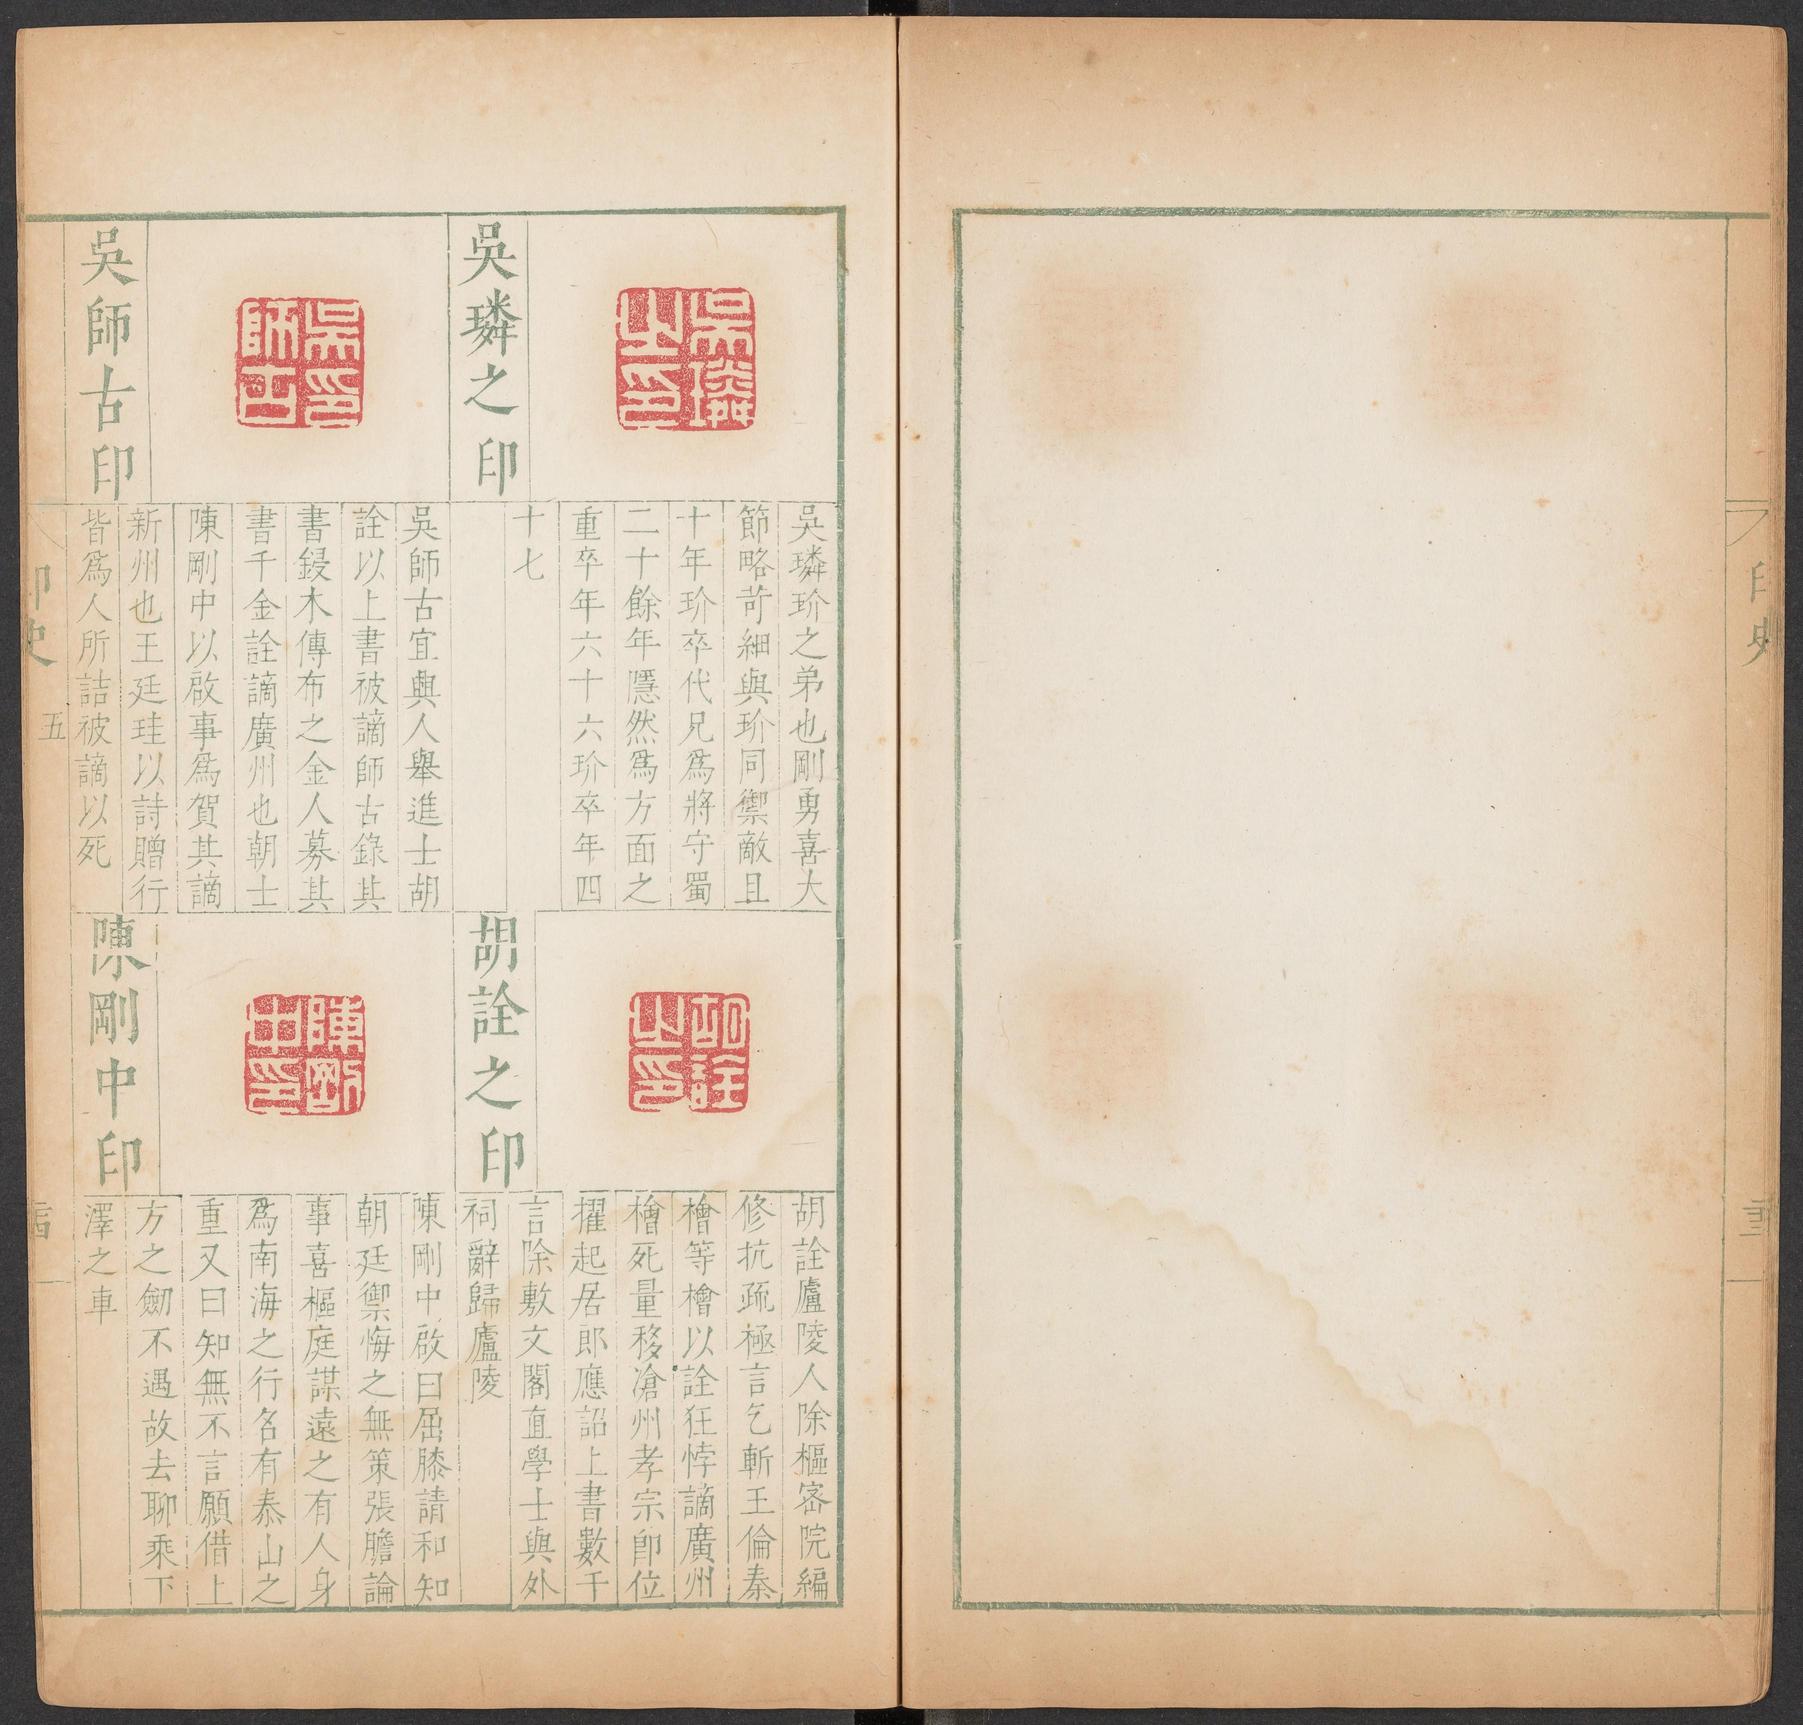 吳璘之印
吳璘玠之弟也剛勇喜大
節略苛細與玠同禦敵且
十年玠卒代兄爲將守蜀
二十餘年隱然爲方面之
重卒年六十六玠卒年四
十七
吳師古印
吳師古宜興人舉進士胡
詮以上書被謫師古錄其
書鋟木傳布之金人募其
書千金詮謫廣州也朝士
陳剛中以啟事爲賀其謫
新州也王廷珪以詩贈行
皆爲人所詰被謫以死
胡詮之印
胡詮廬陵人除樞密院編
修抗疏極言乞斬王倫秦
檜等檜以詮狂悖謫廣州
檜死量移滄州孝宗卽位
擢起居郎應詔上書數千
言除敷文閣直學士與外
祠辭歸廬陵
陳剛中印
陳剛中啟曰屈膝請和知
朝廷禦悔之無策張膽論
事喜樞庭謀遠之有人身
爲南海之行名有泰山之
重又曰知無不言願借上
方之劒不遇故去聊乘下
澤之車
印史
五